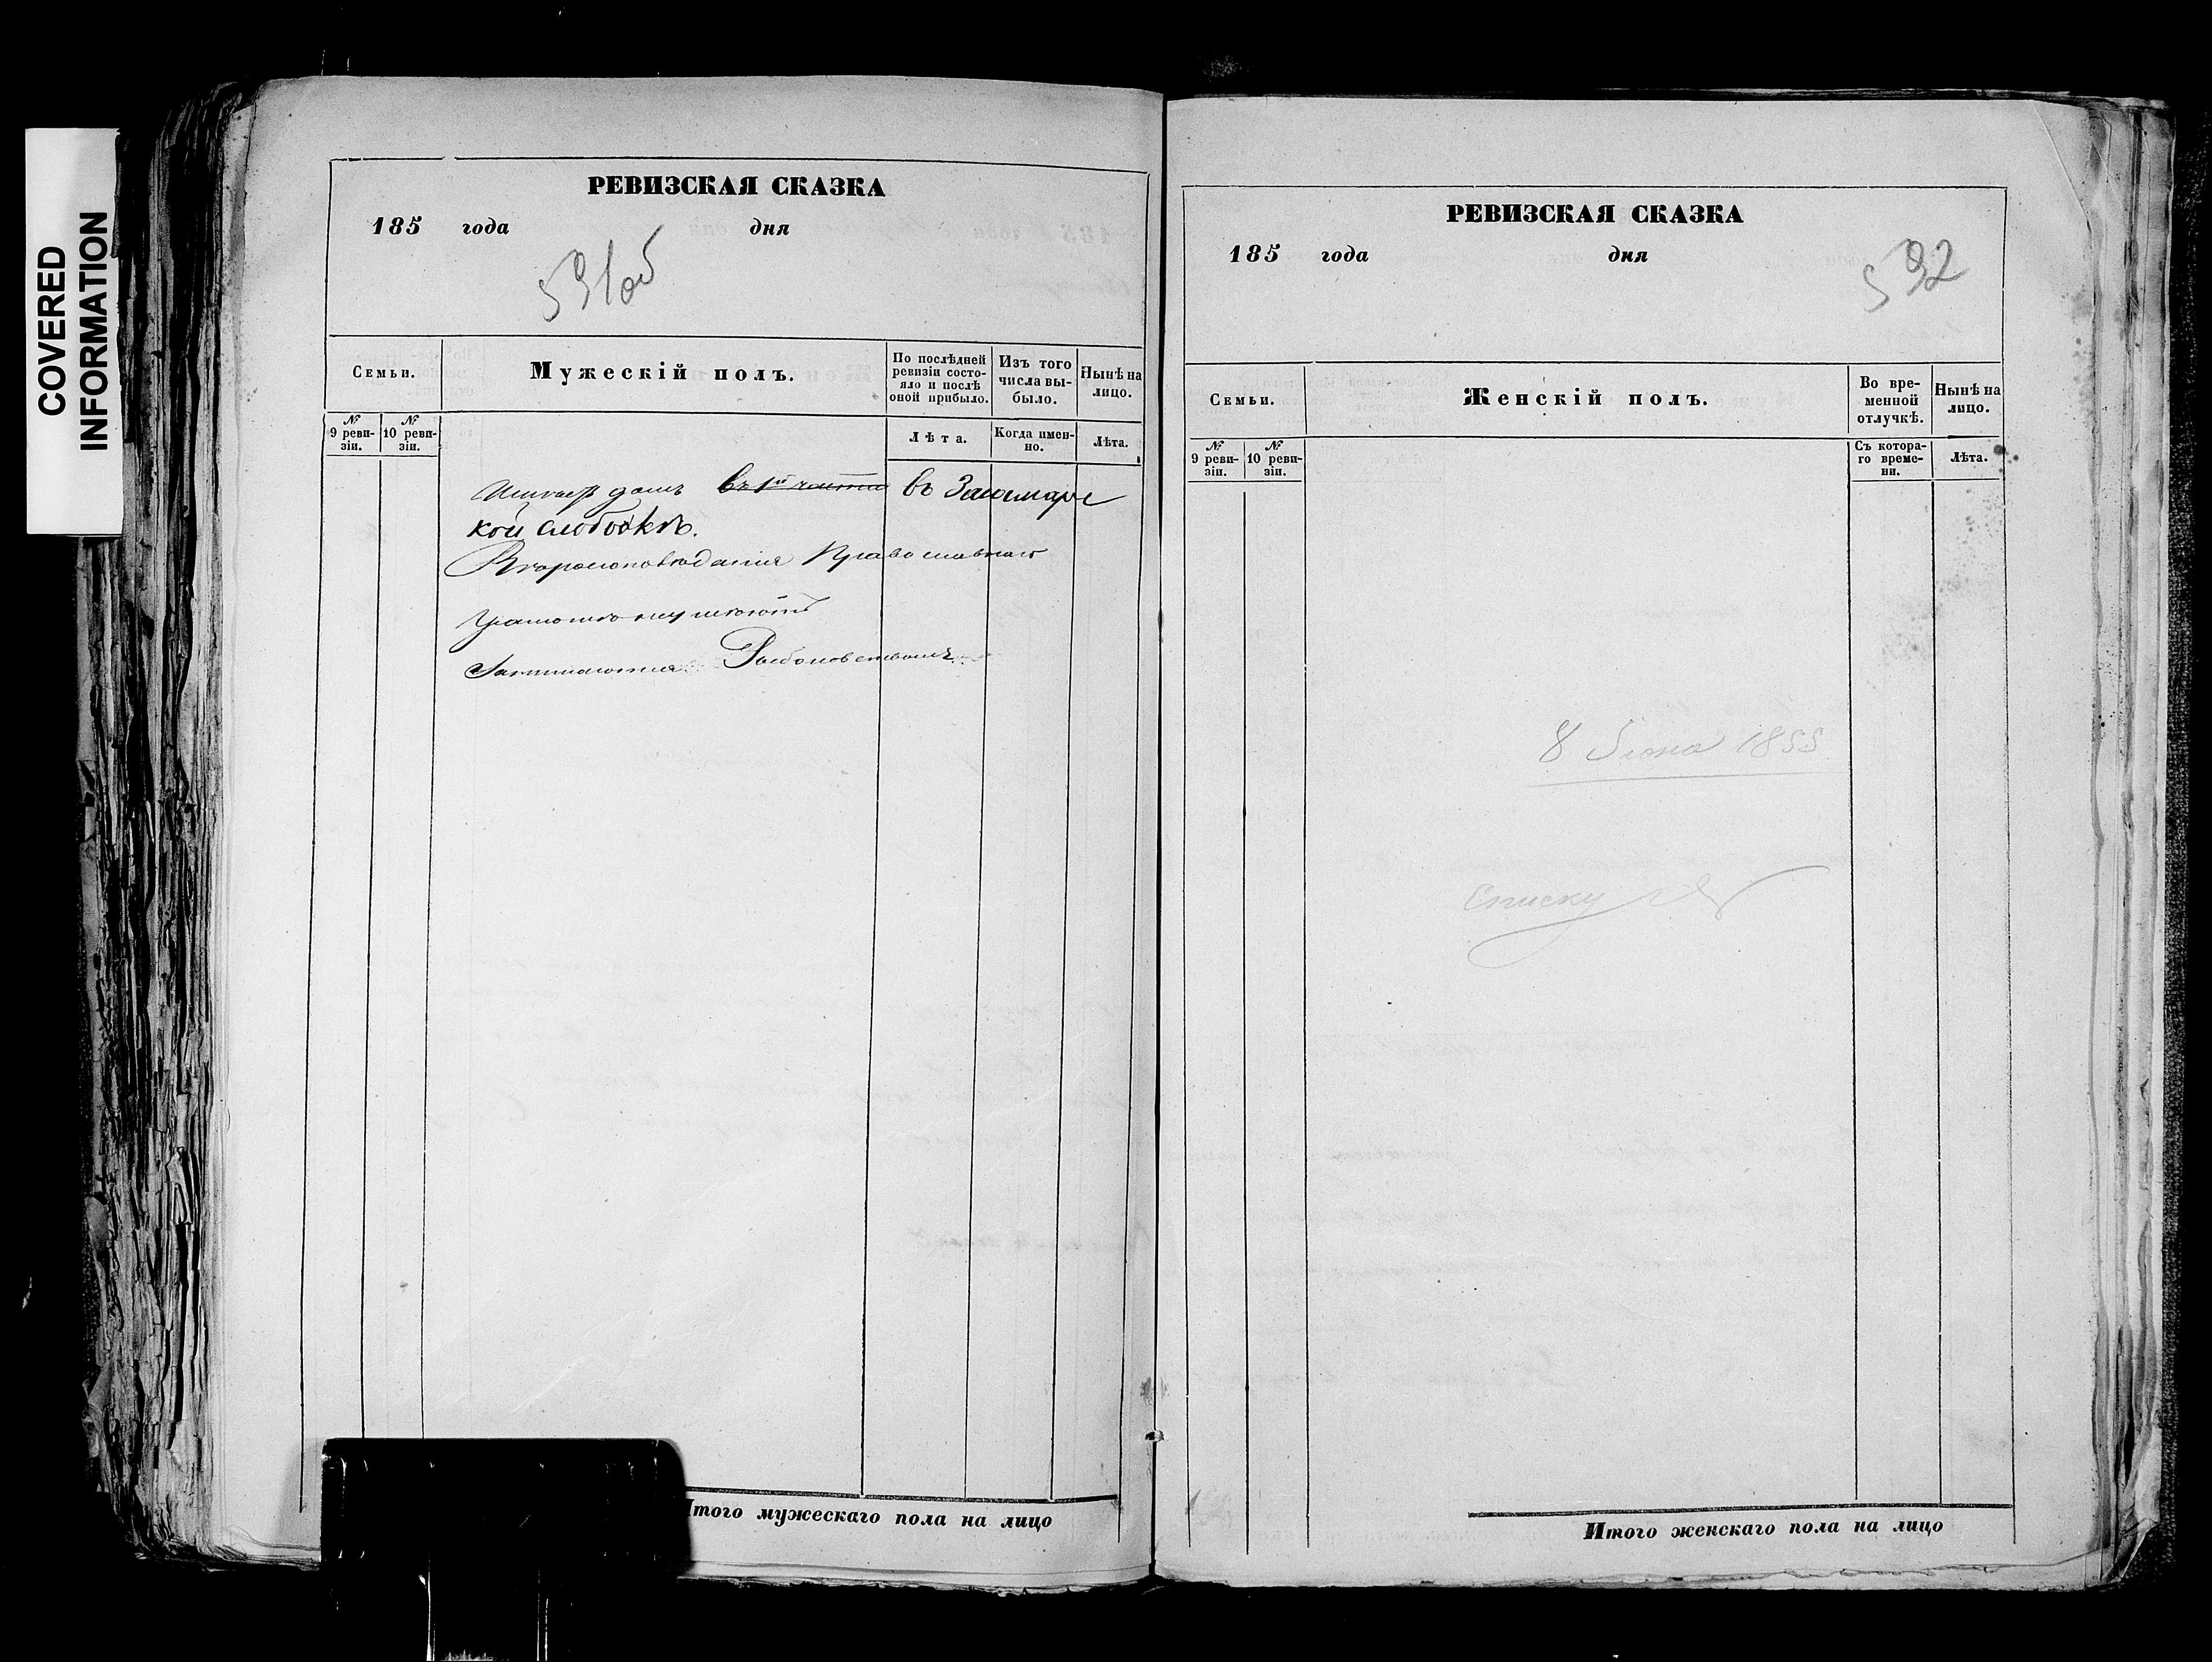 COVERED
INFORMATION
РЕВИЗСКАЯ СКАЗКА
185 года дня
531об
Семьи.
Мужескій полъ.
По послѣдней ревизіи состо-
яло и послѣ
оной прибыло.
Изъ того
числа вы-
было.
Нынѣ на
лицо.
№
9 реви-
зіи.
№
10 реви-
зіи.
Лѣта.
Когда имен-
но.
Лѣта.
домъ въ 1й части въ Засамарс
кой слободкѣ.
Вѣроисповѣданія Православнаго
Грамотѣ
Занимаются Рыболовствомъ
Итого мужескаго пола на лицо
РЕВИЗСКАЯ СКАЗКА
185 года дня
532
Семьи.
Женскій полъ.
Во вре-
менной
отлучкѣ.
Нынѣ на
лицо.
№
9 реви-
зіи.
№
10 реви-
зіи.
Съ котора-
го време-
ни.
Лѣта.
8 1855
Списку
Итого женскаго пола на лицо